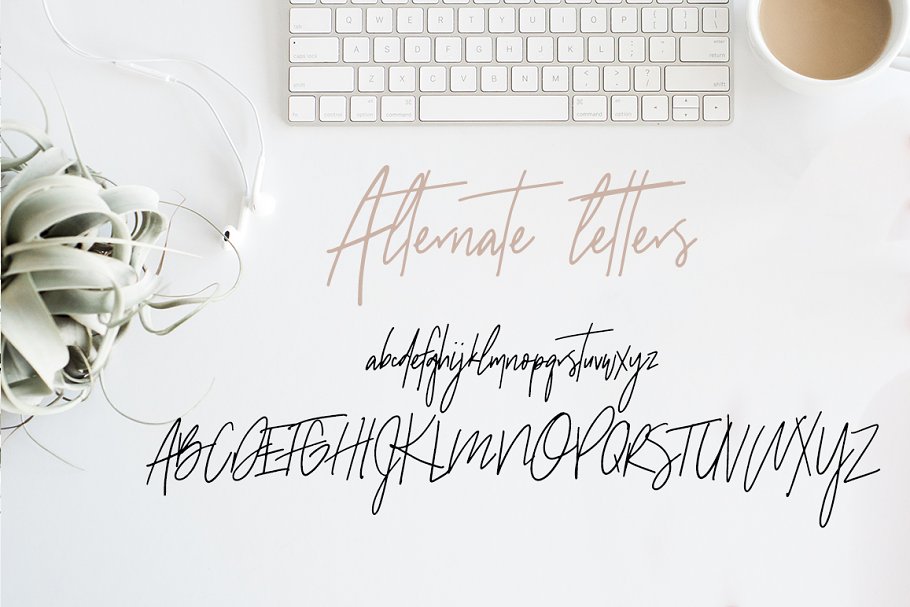 Q W E R T Y U I O P { [ } ] | \
caps lock A S D F G H J K L : ; " ' enter return
shift Z X C V B N M < , > . ? / shift
control option command command option
Alternate letters
abcdefghijklmnopqrstuvwxyz
ABCDEFGHIJKLMNOPQRSTUVWXYZ